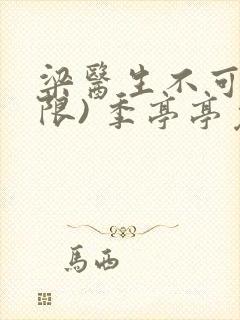 梁醫生不可
限）季亭亭
馬西